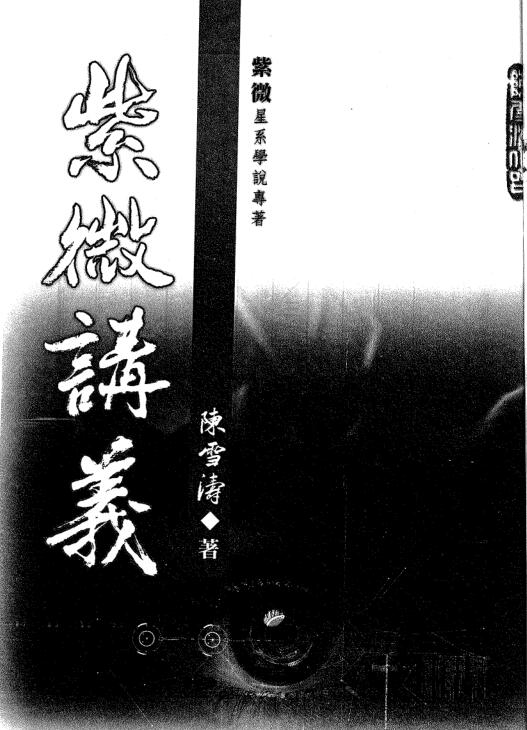 紫微星系學說專著
陳雪濤◆著
紫微講義